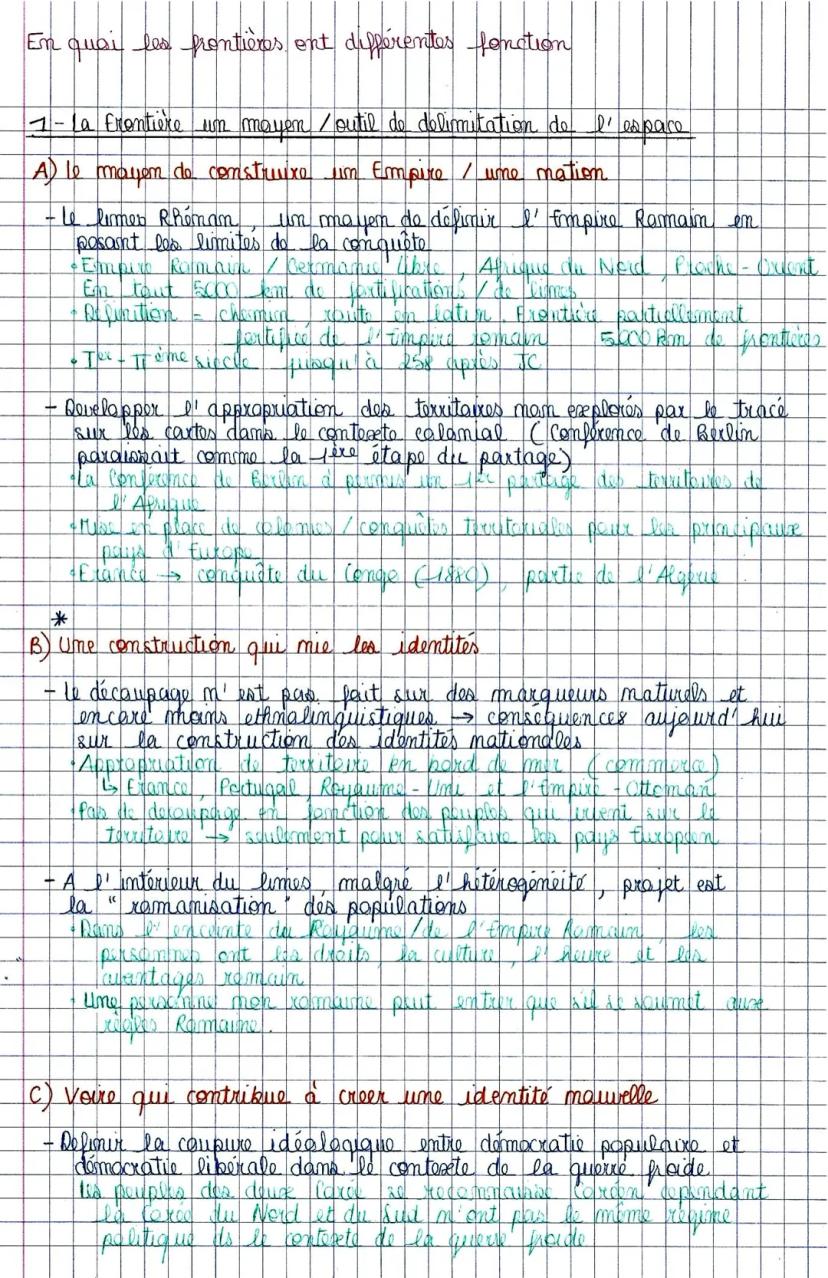 En quoi les frontières ont différentes fonction
1- La Frontière un moyen / outil de delimitation de l'espace
A) le moyen de construire un Empire / une nation
- Le limes Rhénan, un moyen de définir l'Empire Romain en
posant les limites de la conquête
• Empire Romain / Germanie libre, Afrique du Nord, Proche-Orient
En tout 5000 km de fortifications / de limes
• Définition = chemin, route en latin. Frontière partiellement
fortifiée de l'Empire romain 5000 km de frontières
• Ier - IIème siècle jusqu'à 258 après JC
- Developper l'appropriation des territoires non explorés par le tracé
sur les cartes dans le contexte colonial (Conférence de Berlin
paraissait comme la 1ère étape du partage)
• La Conférence de Berlin à permis un 1er partage des territoires de
l'Afrique
• Mise en place de colonies / conquêtes territoriales pour les principaux
pays d'Europe
• France → conquête du Congo (1880), partie de l'Algérie
*
B) Une construction qui nie les identités
- Le découpage n'est pas fait sur des marqueurs naturels et
encore moins ethnolinguistiques → conséquences aujourd'hui
sur la construction des identités nationales
• Appropriation de territoire en bord de mer (commerce)
↳ France, Portugal, Royaume-Uni et l'Empire-Ottoman
• Pas de decoupage en fonction des peuples qui vivent sur le
territoire → seulement pour satisfaire les pays Européen
- A l'intérieur du limes, malgré l'hétérogénéité, projet est
la "romanisation" des populations
• Dans l'enceinte du Royaume / de l'Empire Romain, les
personnes ont les droits, la culture, l'heure et les
avantages romain
• Une personne non romaine peut entrer que s'il se soumet aux
règles Romaine.
C) Voire qui contribue à creer une identité nouvelle
- Définir la coupure idéologique entre démocratie populaire et
démocratie libérale dans le contexte de la guerre froide
les peuples des deux Corée se reconnaisse Coréen cependant
la Corée du Nord et du Sud n'ont pas le même régime
politique ds le contexte de la guerre froide